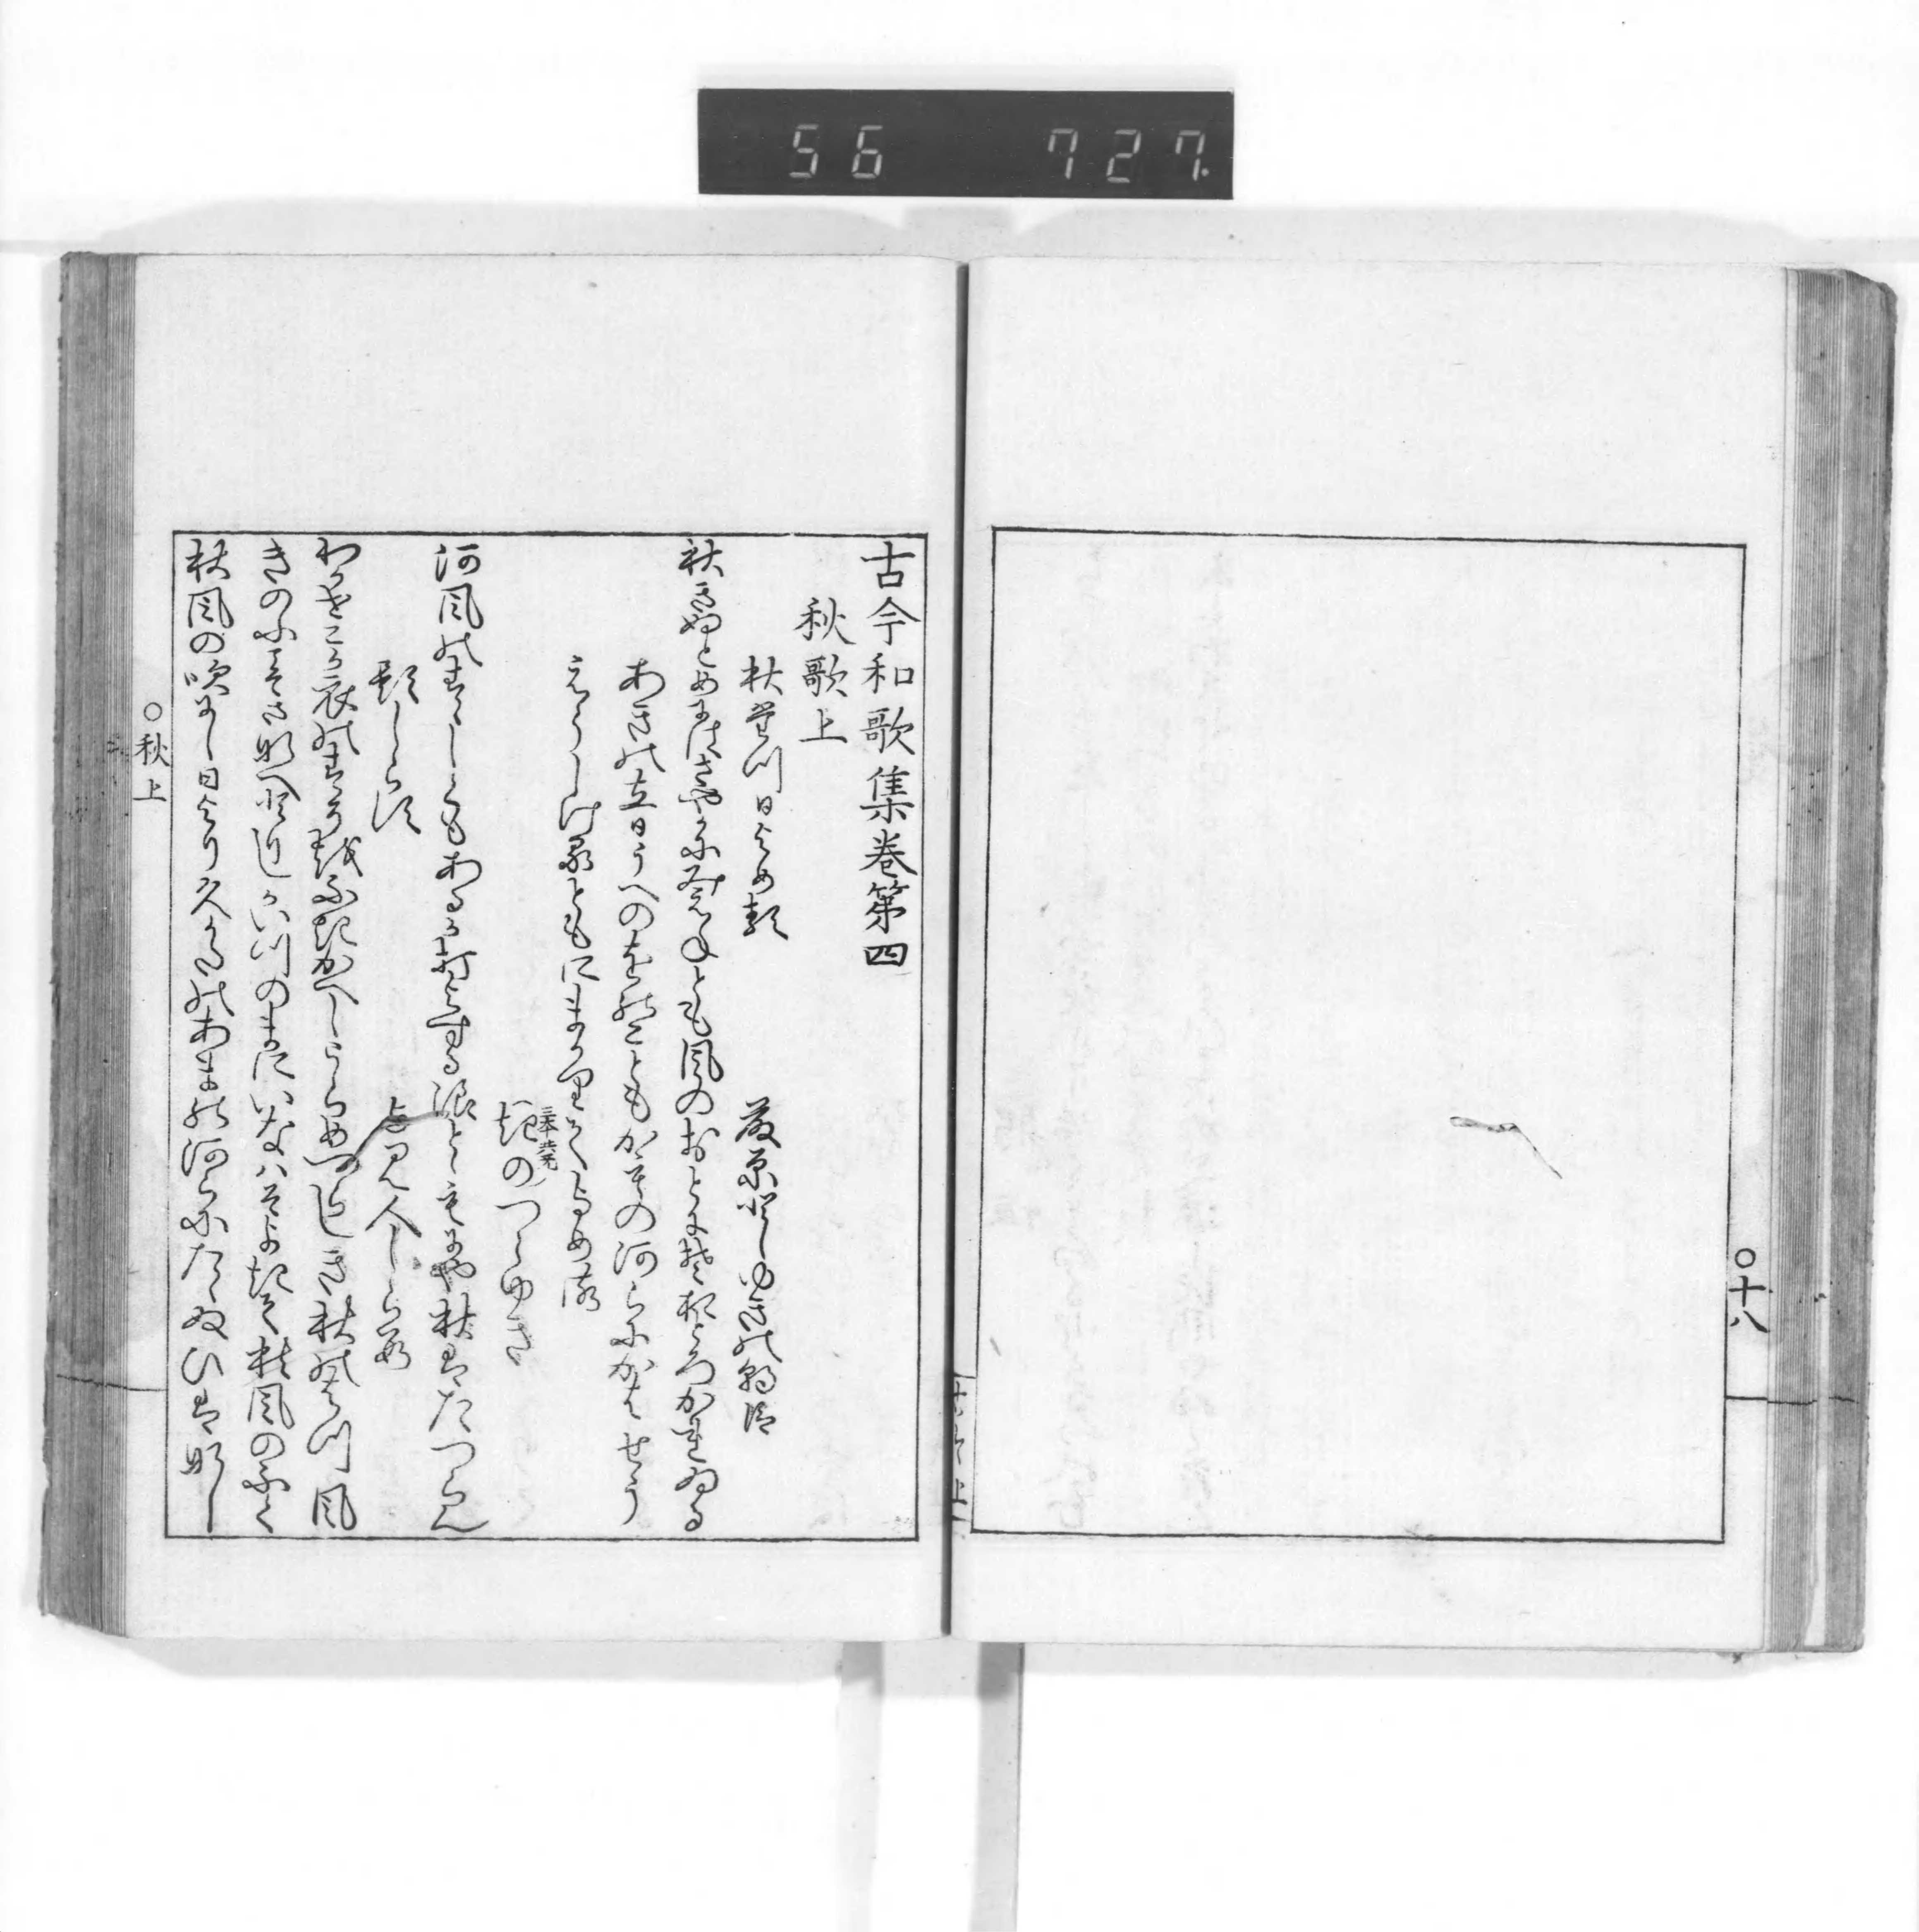 56 727.
○十八
古今和歌集巻第四
秋歌上
秋たつ日よめる
藤原としゆきの朝臣
秋きぬとめにはさやかにみえねとも風のおとにそおとろかれぬる
あきの立日うへのをのこともかもの河らにかはせう
えうしける ともにまかりてよめる
きのつらゆき
三本共无
河風のすゝしくもあるか打よする浪とともにや秋はたつらん
題しらす
よみ人しらす
わかせこか衣のすそを ふきかへしうらめつらしき秋のはつ風
きのふこそさなへとりしかいつのまにいなはそよきて秋風のふく
秋風の吹にし日より久かたのあまの河らにたゝぬひはなし
○秋上